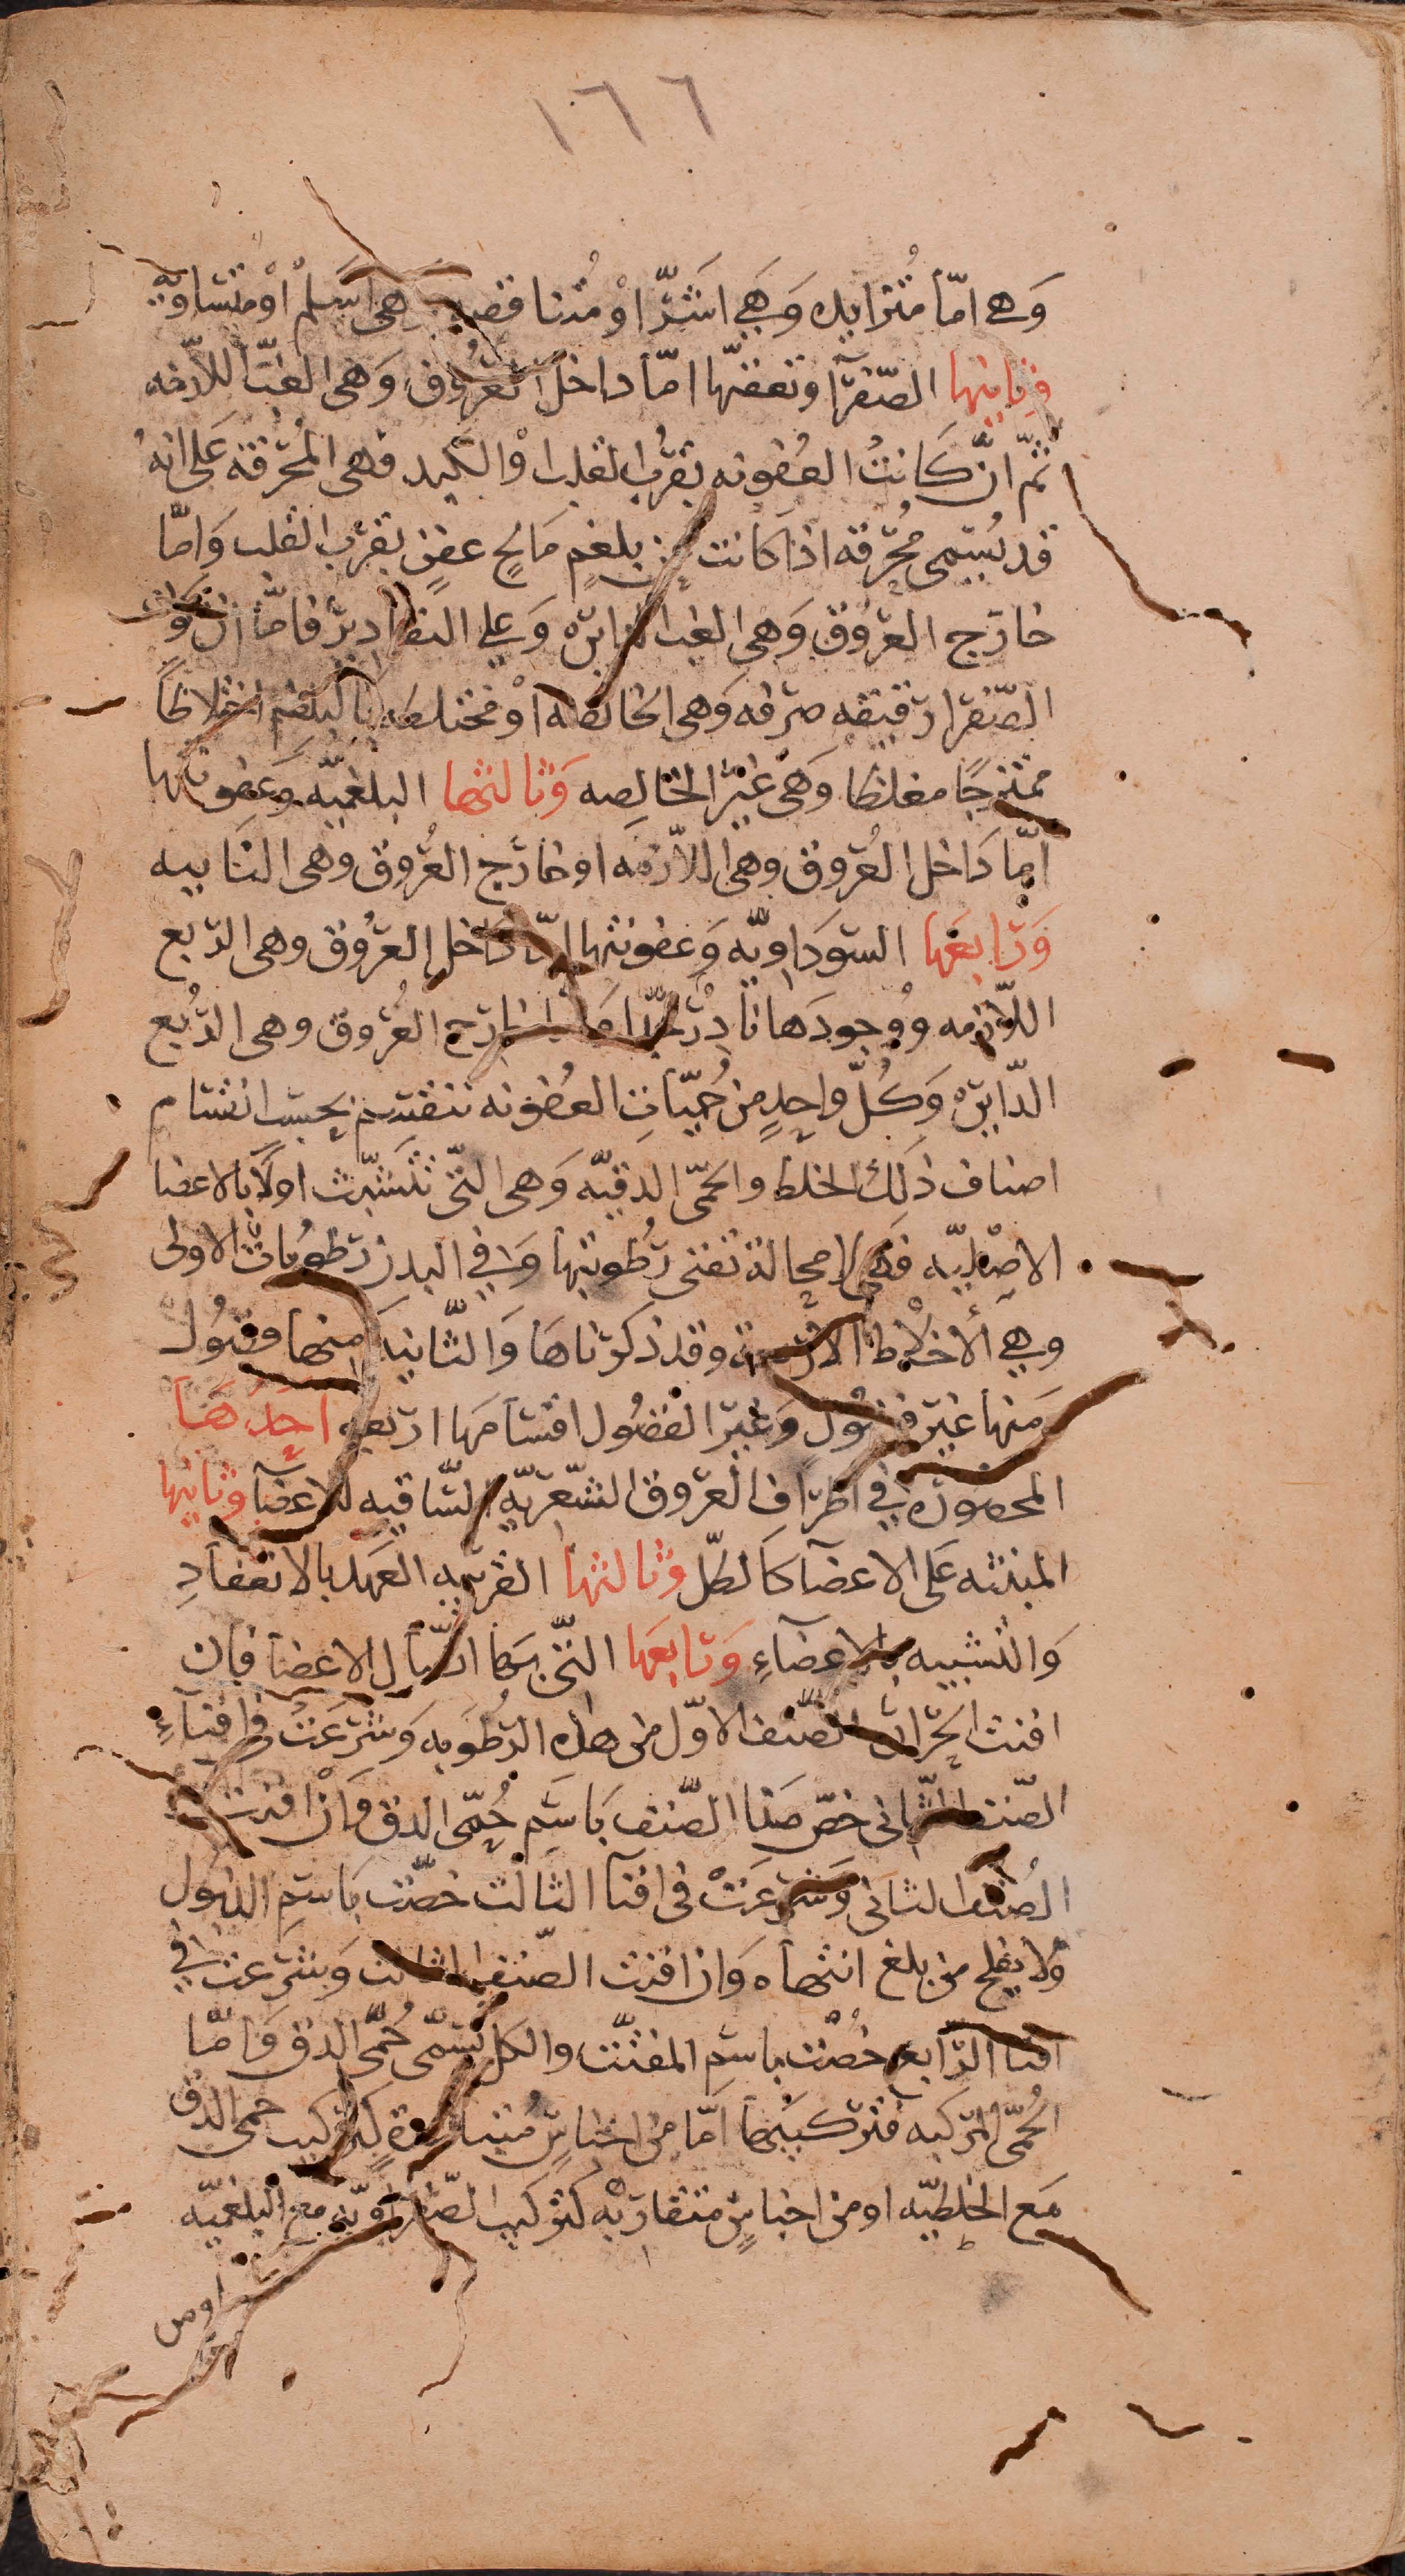 ١٦٦
وَهي امّا مُتزايده وَهِيَ اشَرّ اوْ مُتناقصه هى اسَلمْ اوْ متساويه
وثانيها الصّفرآ وتعفنّها امّا داخل العُروُق وَهى الغبّ اللاّزمه
ثمّ انّ كَانتُ العفُونه بقرُب القلب اوْ الكبد فهى المُحرقة عَلى انهُ
قد يُسَمى مُحرّقه اذا كانت من بلغمٍ مَالحٍ عفنٍ بقرب القلب وَامّا
خارَج العرُوق وَهى الغب الدايره وَعلى التقاديرْ فامّا ان تكوُن
الصّفرا رَقيقه صرفه وَهى الخالصه اوْ مختلطه بالبلغم اختلاطًا
ممتزجًا مغلظا وَهىَ غيْر الخَالِصه وَثالثها البلغميّه وَعفونتها
امّا دَاخل العُروق وهى اللاّزمه او خارَج العُروق وهى النَايبه
وَرَابعَها السّودَاويّه وَعفونتها امّا دَاخل العرُوق وهى الربع
اللاّزمه ووُجودهَا نادِرْ جدّا وَامّا خارَج العُروق وهى الرُبع
الدّايره وَكُلّ واحِدٍ من حُمّيّات العفُونه تنقسم بحسَب انقسَام
اصناف ذَلك الخلط والحمّى الدقيّه وَهى التّى تتَشبّث اولًا بالاعضا
الاصْليّه فهى لا محِالة تفنى رَطُوبتها وَفي البدن رَطوُباتُ الاولى
وهِيَ الأخلاط الاربعة وقد ذكرناهَا وَالثّانيَه منها فضُول
وَمنها غيَر فضُولٍ وَغيرَ الفضُول اقسَامهَا ارَبعه احَدُهَا
المحصوره في اطرَاف العرُوق الشّعريّه السّاقيه للاعضآ وثانيها
المبثثه عَلى الاعضآ كَالطّل وَثالثها القرَيبه العَهد بالانعقادِ
وَالتشبيه بالاعضآءِ وَرابعَها التّى بهَا اتّصَال الاعضآ فان
افنت الحرَارَة الصّنف الاوّل من هذه الرطُوبه وَشرعَتْ في افنآءِ
الصّنف الثّانى خصّ هَذا الصّنف بَاسَم حُمّى الدق وَان افنت
الصُنف الثانى وَشرعَتْ فى افنآ الثَالث خصّت بَاسَم الذبول
وَلا يفلح من بلغ انتهاه وَان افنت الصّنف الثالث وَشرعت في
افنا الرَابع خُصّت باسَم المفتّت والكل يُسَمّى حُمّى الدق وَامّا
الحُمّى المركبه فترَكيبُها امّا من اجناسٍ مُتباعدةٍ كتركيب حمى الدق
مَع الخلطيّه او من اجناسٍ متقارَبْه كترَكيب الصّفراويّه مع البلغميّه
اومن